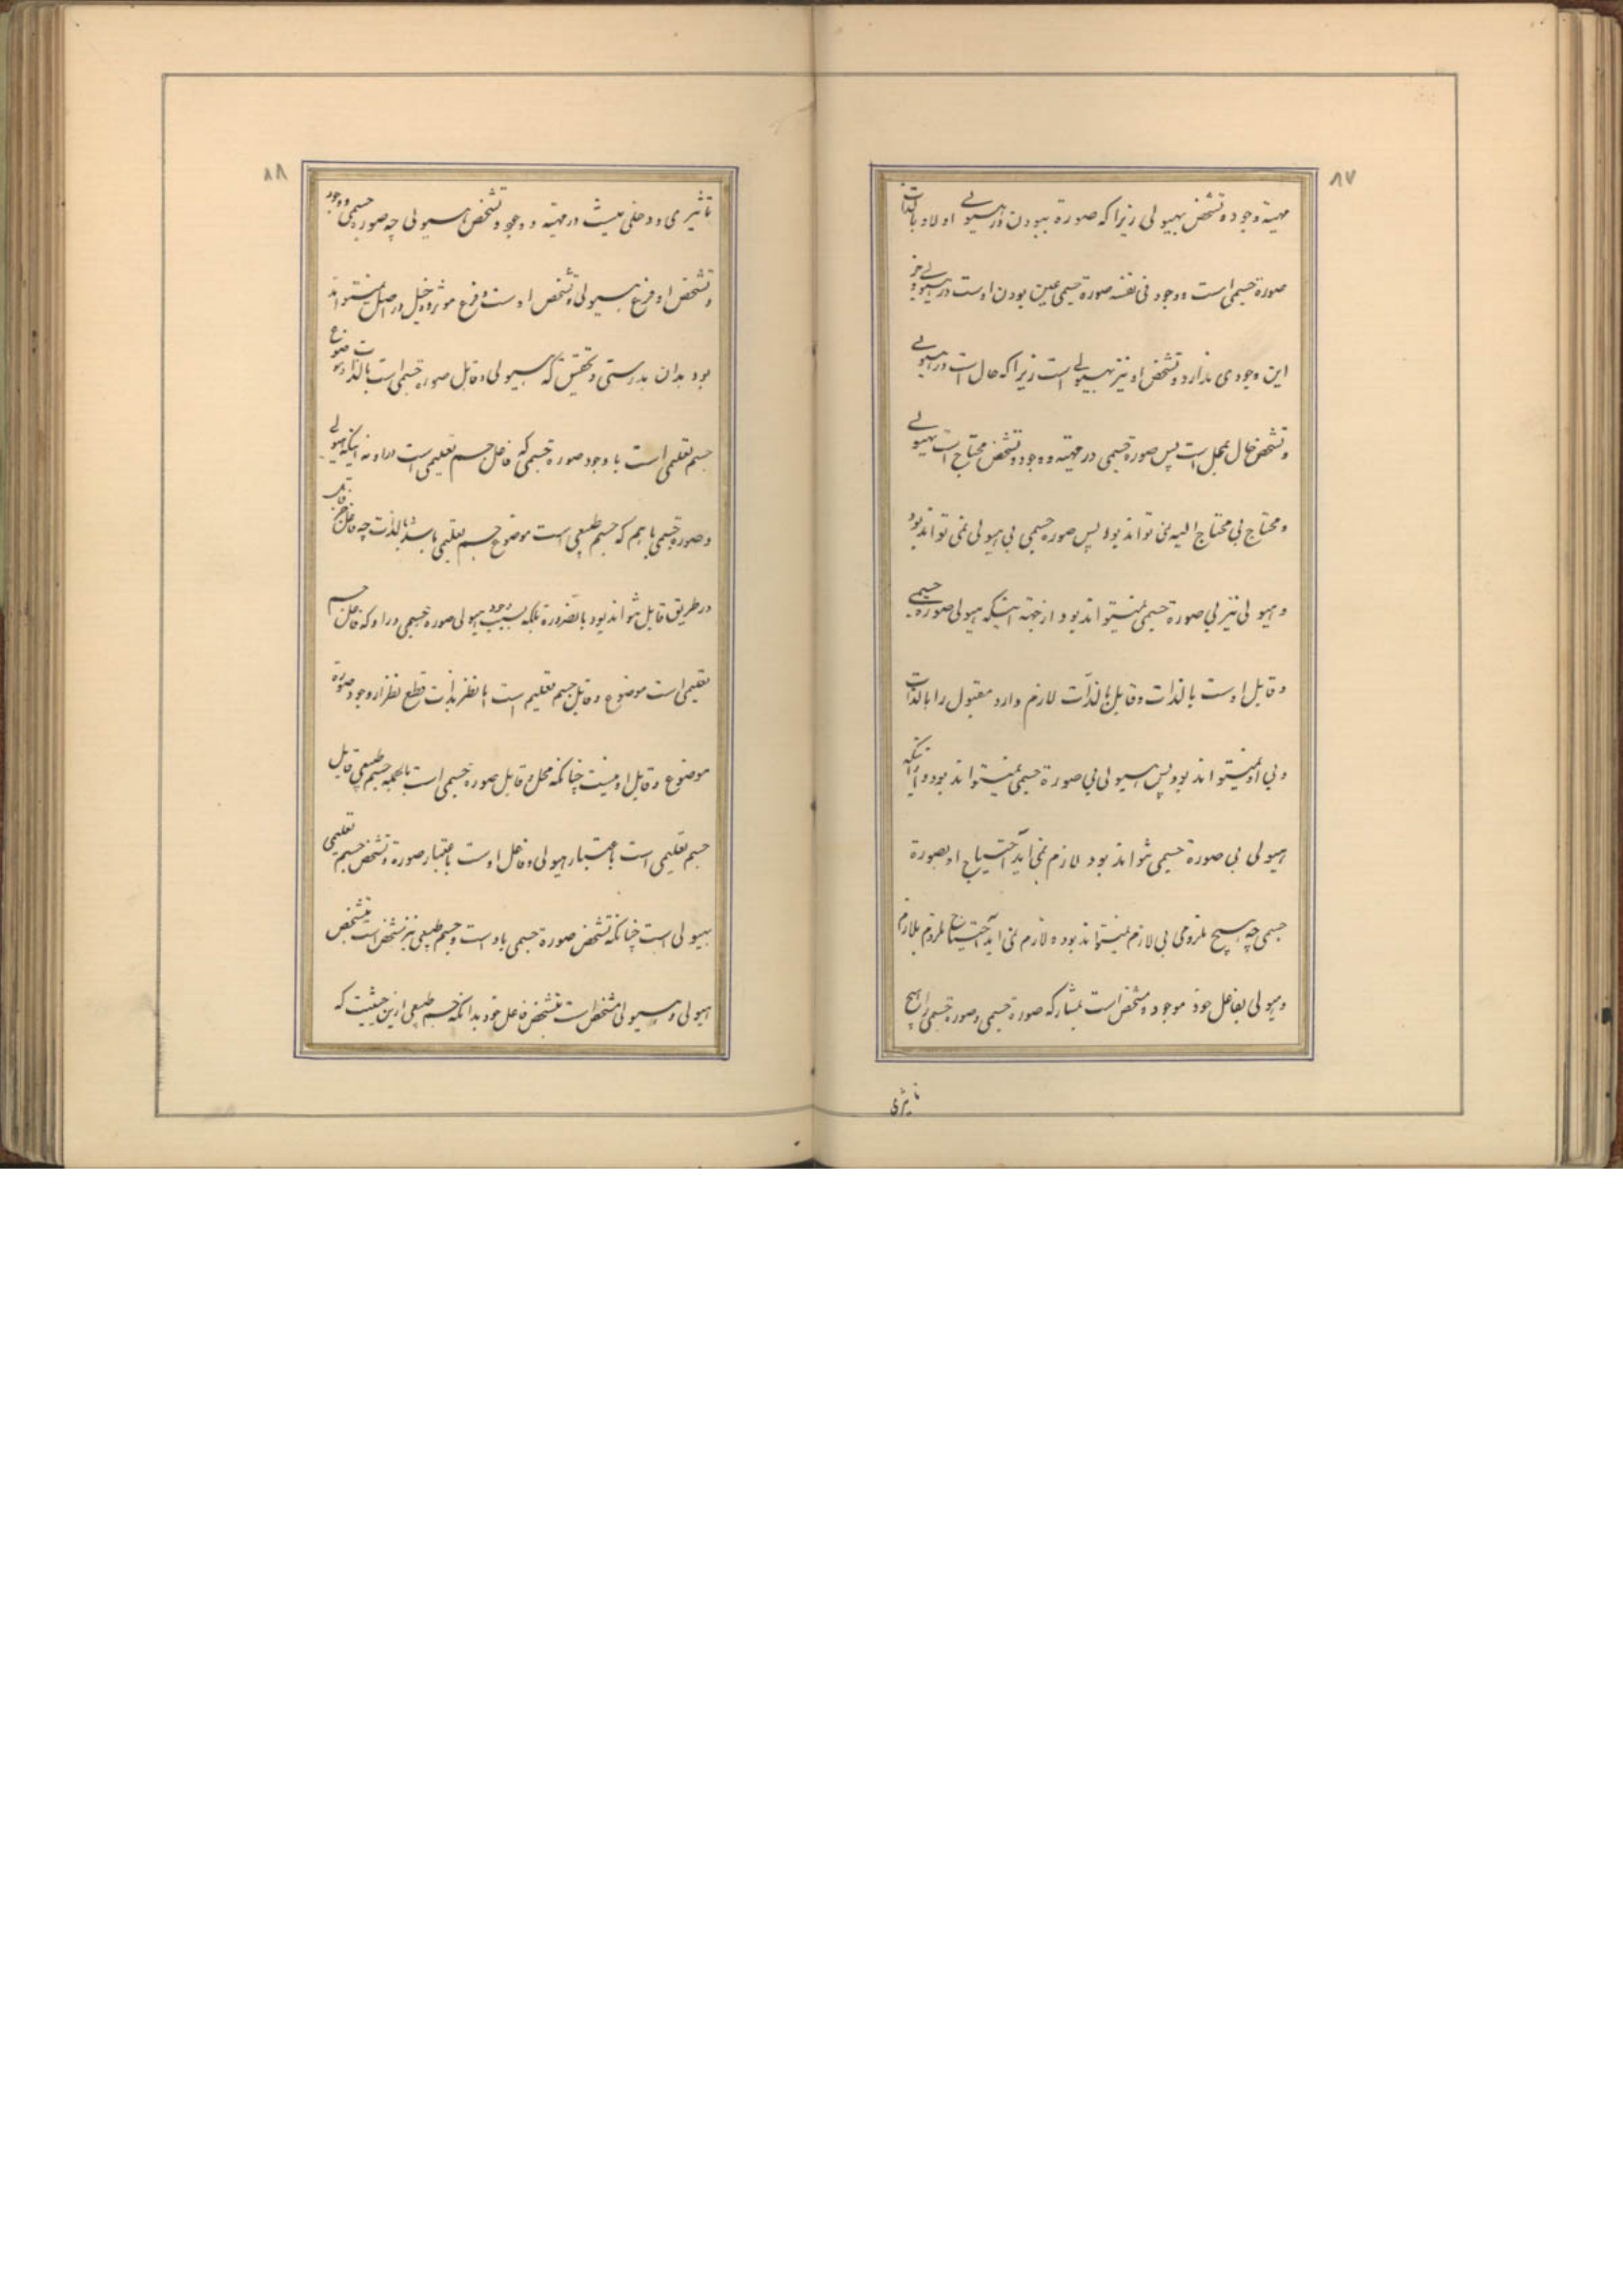 ۸۷
مهیة وجود و تشخص بهیولی زیرا که صورة ببودن در هیولی اولا و بالذات
صورة جسمی است و وجود فی نفسه صورة جسمی عین بودن اوست در هیولی جز
این وجودی ندارد و تشخص او نیز بهیولی است زیرا که حال است در هیولی
و تشخص حال بمحل است پس صورة جسمی در مهیة و وجود و تشخص محتاج است بهیولی
و محتاج بی محتاج الیه نمی تواند بود پس صورة جسمی بی هیولی نمی تواند بود
و هیولی نیز بی صورة جسمی نمیتواند بود از جهة اینکه هیولی صورة جسمی
و قابل اوست بالذات و قابل بالذات لازم دارد مقبول را بالذات
و بی او نمیتواند بود پس هیولی بی صورة جسمی نمیتواند بود و از آنکه
هیولی بی صورة جسمی نتواند بود لازم نمی آید احتیاج او بصورة
جسمی چه هیچ ملزومی بی لازم نمیتواند بود و لازم نمی آید احتیاج ملزوم بلازم
و هیولی بفاعل خود موجود و مشخص است بمشارکه صورة جسمی و صورة جسمی را هیچ
تاثیری
۸۸
تاثیری و دخلی نیست در مهیة و وجود و تشخص هیولی چه صورة جسمی و وجود
و تشخص او فرع هیولی و تشخص اوست و فرع موثر و دخیل در اصل نمیتواند
بود بدان بدرستی و تحقیق که هیولی و قابل صورة جسمی است بالذات و موضوع
جسم تعلیمی است با وجود صورة جسمی که فاعل جسم تعلیمی است در او نه اینکه هیولی
و صورة جسمی باهم که جسم طبیعی است موضوع جسم تعلیمی باشد بالذات چه فاعل جزء قابل
در طریق قابل نتواند بود بالضرورة بلکه بسبب وجود هیولی صورة جسمی در او که فاعل جسم
تعلیمی است موضوع و قابل جسم تعلیم است با نظر بذات قطع نظر از وجود صورة
موضوع و قابل او نیست چنانکه محل و قابل صورة جسمی است بالجمله جسم طبیعی قابل
جسم تعلیمی است باعتبار هیولی و فاعل اوست باعتبار صورة و تشخص جسم تعلیمی
بهیولی است چنانکه تشخص صورة جسمی باوست و جسم طبیعی نیز مشخص است بتشخص
هیولی و هیولی مشخص است بتشخص فاعل خود بدانکه جسم طبیعی ازین حیثیت که